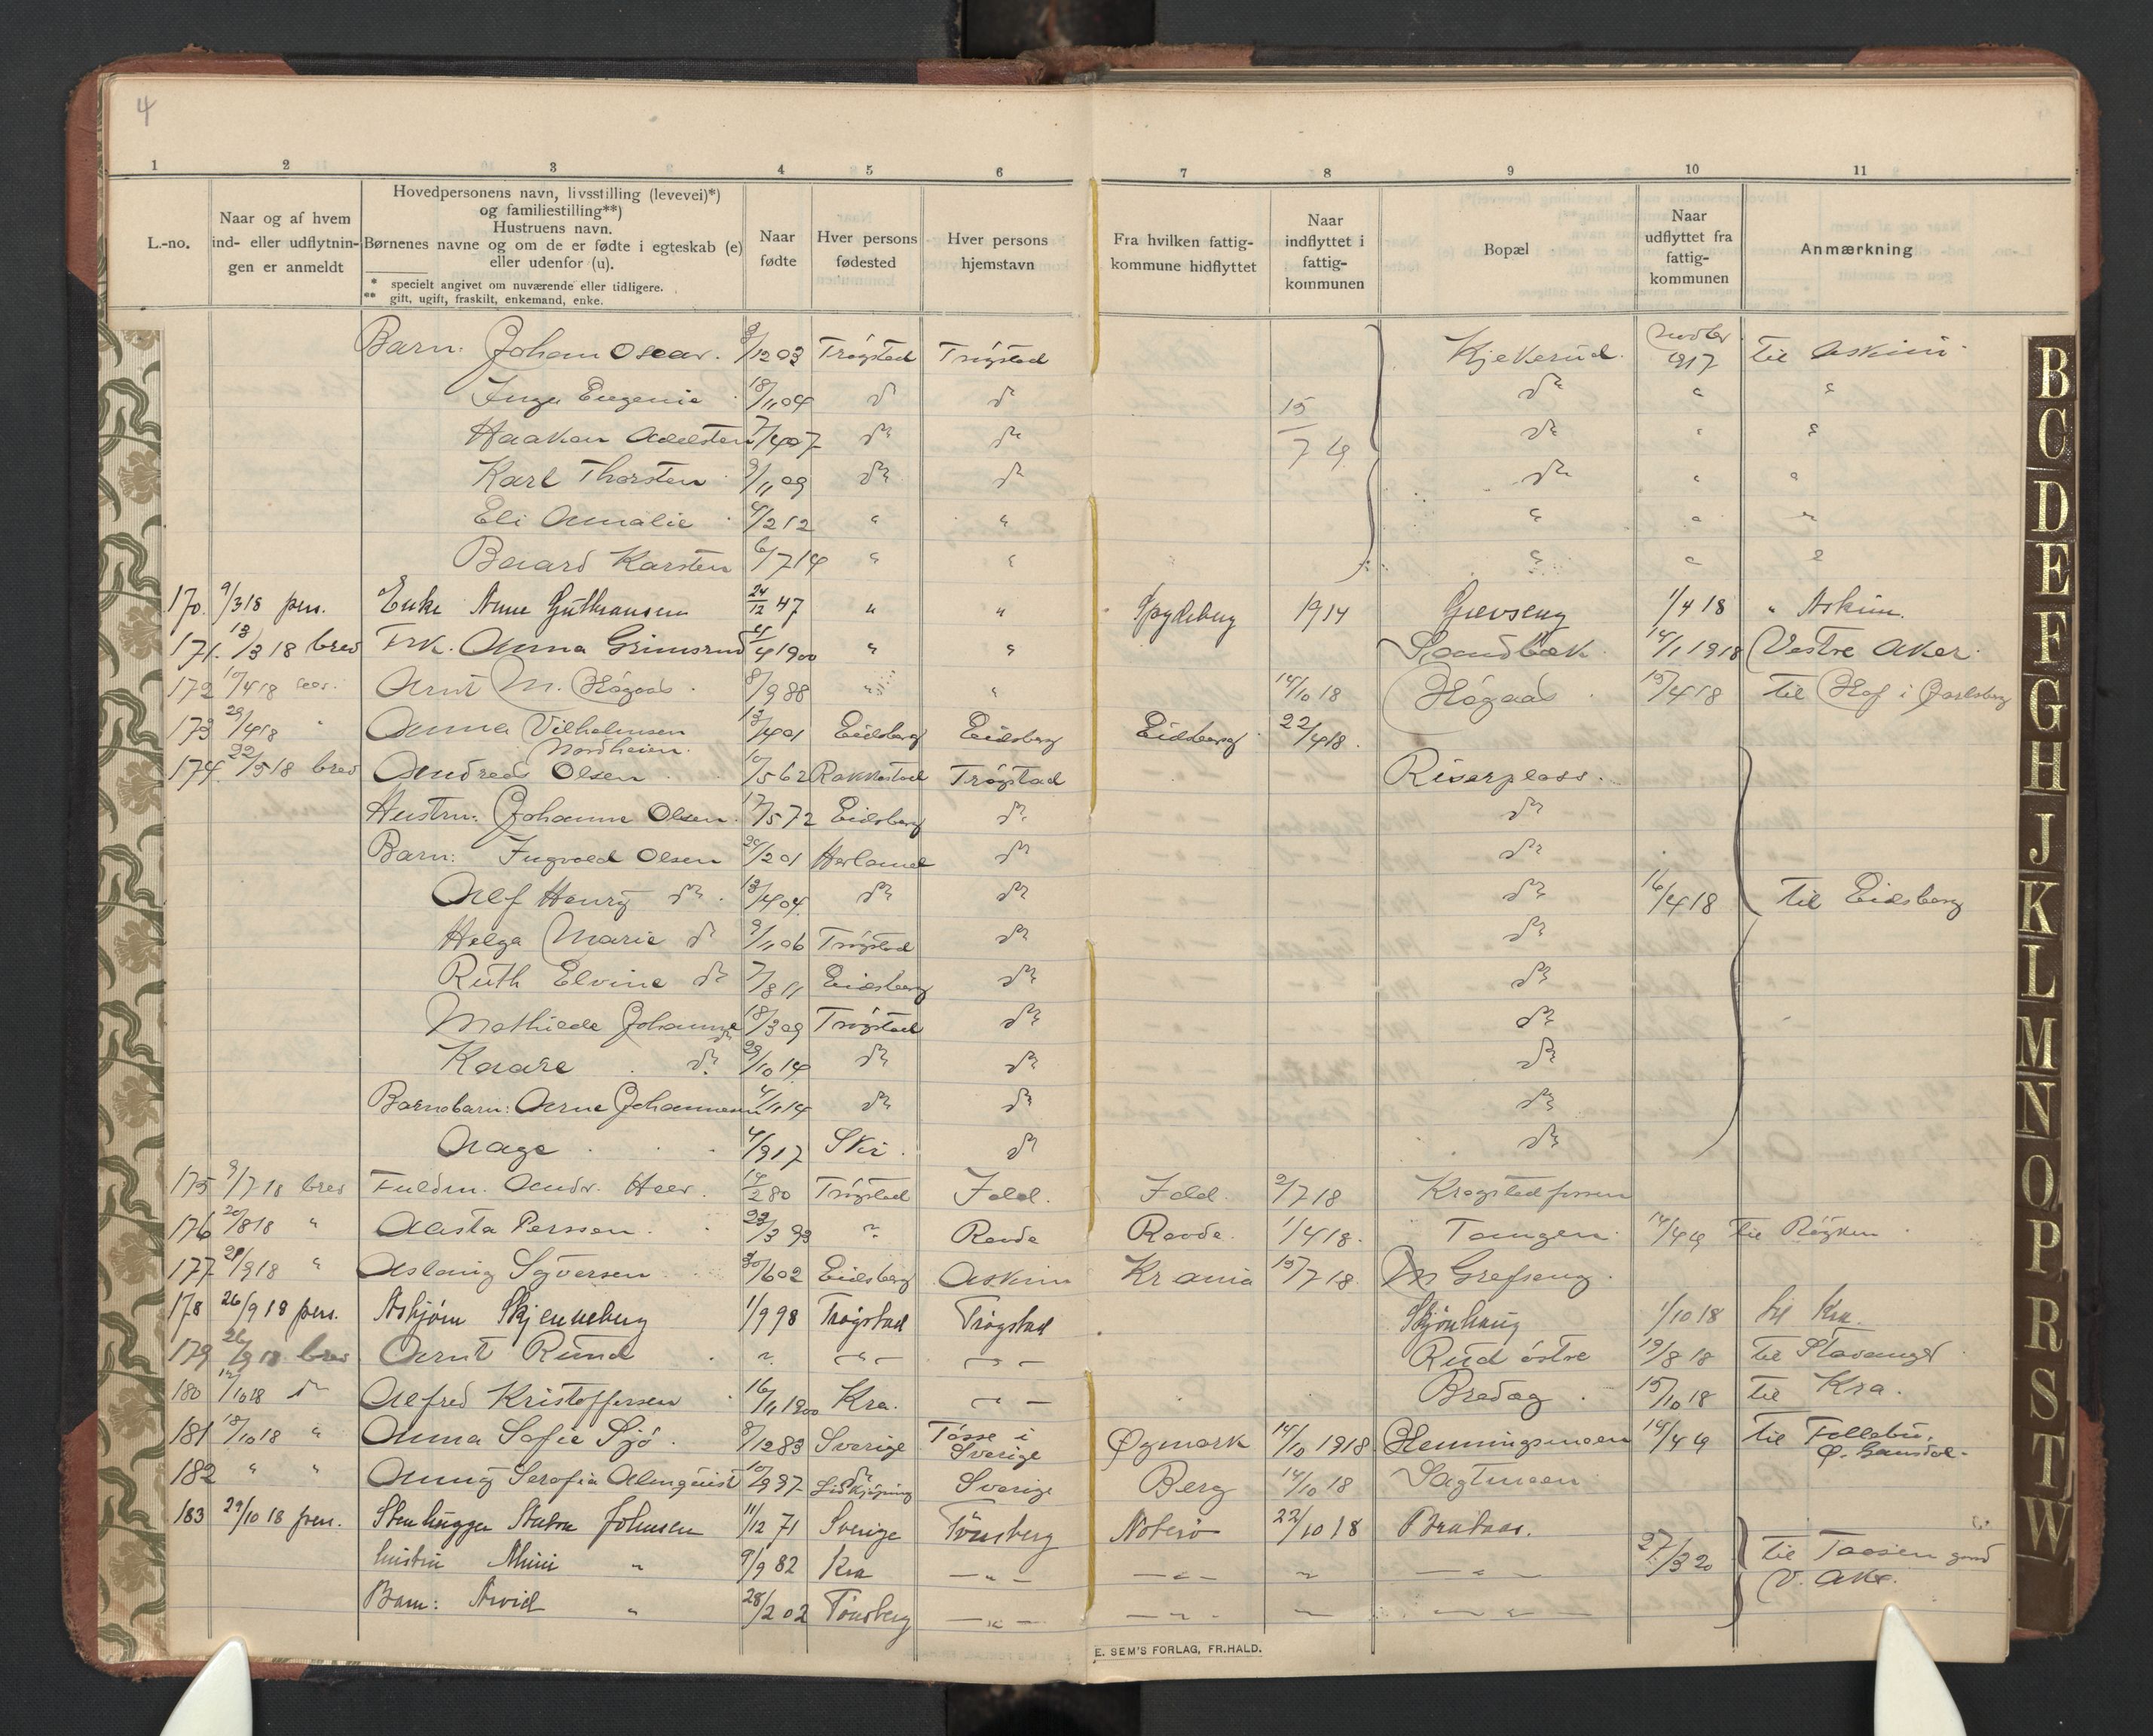 4
1 2 3 4 5 6 7 8 9 10 11
L.-no.
Naar og af hvem
ind- eller udflytnin-
gen er anmeldt
Hovedpersonens navn, livsstilling (levevei)*)
og familiestilling**)
Hustruens navn.
Børnenes navne og om de er fødte i egteskab (e)
eller udenfor (u).
* specielt angivet om nuværende eller tidligere.
** gift, ugift, fraskilt, enkemand, enke.
Naar
fødte
Hver persons
fødested
Hver persons
hjemstavn
Fra hvilken fattig-
kommune hidflyttet
Naar
indflyttet i
fattig-
kommunen
Bopæl
Naar
udflyttet fra
fattig-
kommunen
Anmærkning
Barn: Johan Oscar. 9/12 03 Trøgstad Trøgstad Kjekerud 1917 Til Askim
Inga Eugenie 18/1 04 do do 15/7 19 do " "
Haakon Adelsten 7/4 07 do do do " "
Karl Thorsten 9/11 09 do do do " "
Eli Amalie 4/2 12 " " " " "
Karsten 6/7 14 " " " " "
170. 9/3 18 pers. Enke Anne Gulbransen 24/12 47 " " Spydeberg 1914 Grevseng 1/4 18 " Askim.
171. 13/3 18 brev Frk. Anna Grimsrud 4 1900 " " Sandbæk 14/1 1918 Vestre Aker.
172 10/4 18 Arnt M. Høgaas. 8/9 88 " " 14/10 18 Høgaas 15/4 18 Til Hof i Jarlsberg
173 29/4 18 " Anna Vilhelmsen 13/4 01 Eidsberg Eidsberg Eidsberg 22/4 18.
Nordheien.
174 22/5 18 brev Andreas Olsen 10/5 62 Rakkestad Trøgstad Riserplass.
Hustru: Johanne Olsen. 17/5 72 Eidsberg do do
Barn: Ingvald Olsen 20/2 01 Hærland do do
Alf Henry do 13/4 04 do do do 16/4 18 Til Eidsberg
Helga Marie do 9/1 06 Trøgstad do do
Ruth Elvine do 7/8 11 Eidsberg do do
Mathilde Johanne do 18/3 09 Trøgstad do do
Kaare do. 29/10 14 do do do
Barnebarn: Arne Johannesen 4/11 14 do do do
Aage 4/9 17 Ski. do do
175 9/7 18 brev Fuldm. Andr. Heer. 14/2 80 Trøgstad Idd. Idd. 2/7 18 Krogstadfossen
176 20/8 18 " Alista Persson. 22/3 93 " Raade Raade. 1/4 18. Tangen 14/4 19 Til Røyken
177 28/9 18 " Aslaug Syversen 30/6 02 Eidsberg Askim Krania 15/7 18. Grefseng.
178 26/9 18 pers. Asbjørn Skjenneberg 1/9 98 Trøgstad Trøgstad Skjønhaug 1/10 18 til Kra.
179 26/9 18 brev Arnt Rund " — " — — " — Rud østre 19/8 18 Til Stavanger
180 12/10 18 do Alfred Kristoffersen 16/11 1900 Kra. — " — Bredag 15/10 18 Til Kra.
181 18/10 18 " Anna Sofie Sjö. 8/12 83 Sverige Tösse i Sverige Øymark 14/10 1918 Henningsmoen 14/4 19 Til Follebu, Ø. Gausdal.
182 " " Anny Serafia Almquist 10/9 97 do Lidkjöping Sverige Berg 14/10 18 Sagtmoen
183 29/10 18 pers. Stenhugger Anton Johnsen 11/12 71 Sverige Tönsberg Nøterø 22/10 18 Brataas.
hustru Mimi " 9/9 82 Kra — " — — " — " — " — 27/3 20 Til Taasen gaard
V. Aker.
Barn: Arvid " 28/2 02 Tönsberg — " — — " — " — " —
E. SEM'S FORLAG, FR.HALD.
B
C
D
E
F
G
H
J
K
L
M
N
O
P
R
S
T
W